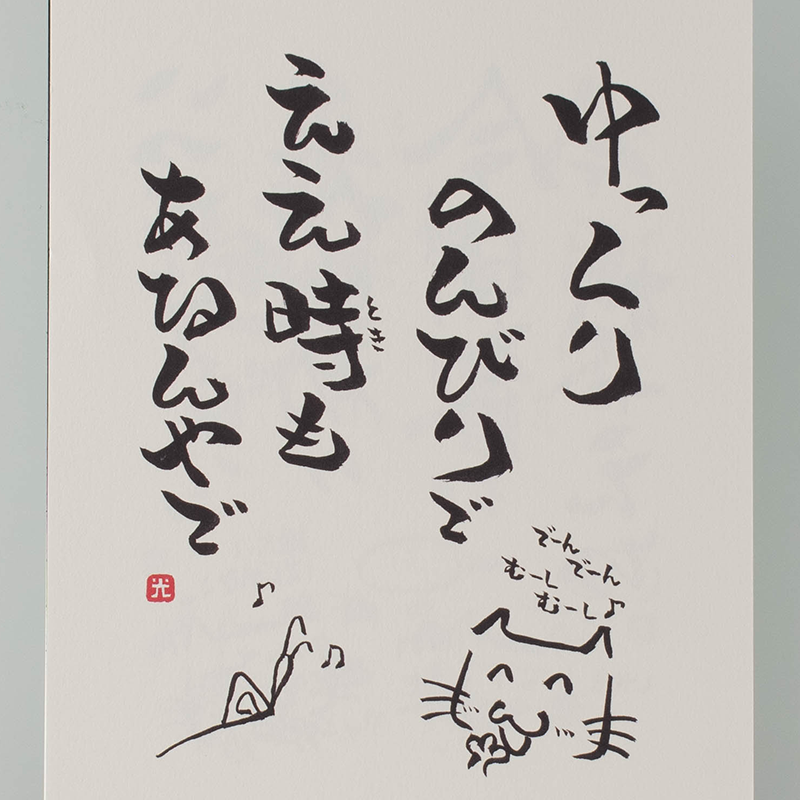 ゆっくり
のんびりで
ええ時も
とき
あるんやで
光
でーん
でーん
むーし
むーし♪